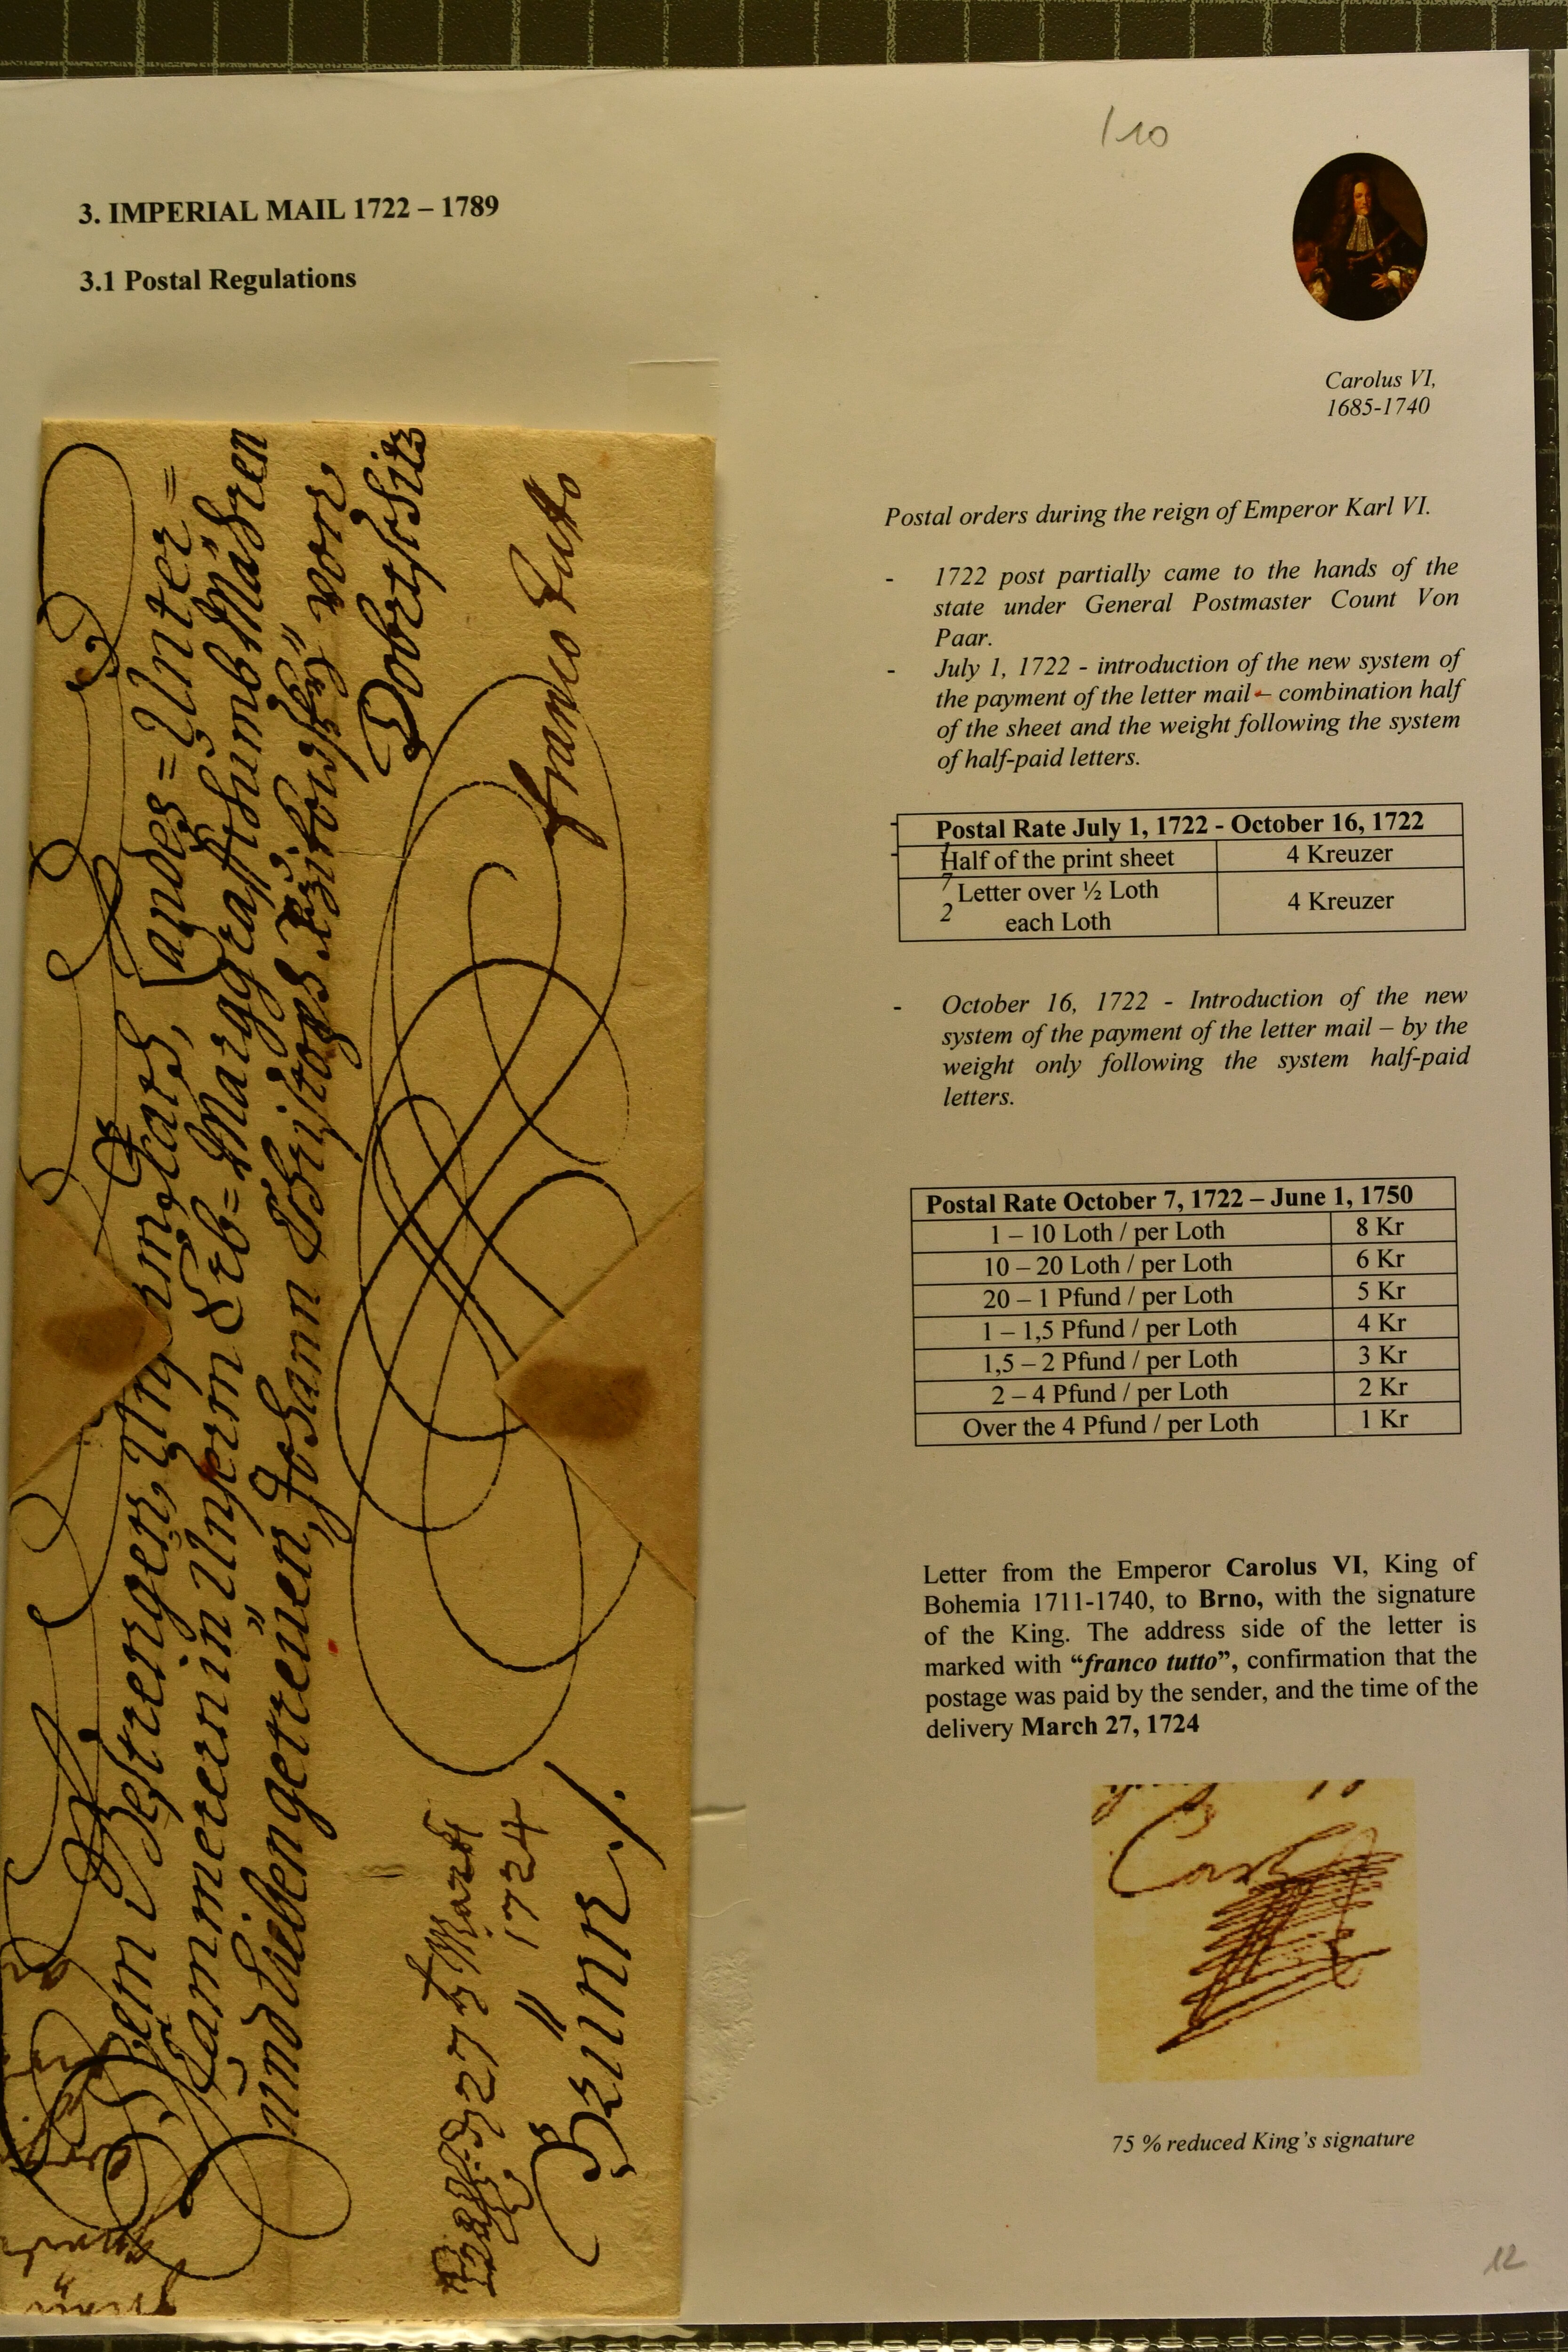 /10
3. IMPERIAL MAIL 1722 – 1789
3.1 Postal Regulations
Carolus VI,
1685-1740
Gestrengen, Unserm Rath, Landes=Unter=
Cammerern in Unserm Erb=Marggraffthumb Mähren
und Lieben getreüen Johann Christoph von
Dobrzschitz
franco tutto
27 Marti
1724
Brünn ./.
Postal orders during the reign of Emperor Karl VI.
- 1722 post partially came to the hands of the
state under General Postmaster Count Von
Paar.
- July 1, 1722 - introduction of the new system of
the payment of the letter mail – combination half
of the sheet and the weight following the system
of half-paid letters.
Postal Rate July 1, 1722 - October 16, 1722
Half of the print sheet 4 Kreuzer
Letter over ½ Loth
each Loth 4 Kreuzer
- October 16, 1722 - Introduction of the new
system of the payment of the letter mail – by the
weight only following the system half-paid
letters.
Postal Rate October 7, 1722 – June 1, 1750
1 – 10 Loth / per Loth 8 Kr
10 – 20 Loth / per Loth 6 Kr
20 – 1 Pfund / per Loth 5 Kr
1 – 1,5 Pfund / per Loth 4 Kr
1,5 – 2 Pfund / per Loth 3 Kr
2 – 4 Pfund / per Loth 2 Kr
Over the 4 Pfund / per Loth 1 Kr
Letter from the Emperor Carolus VI, King of
Bohemia 1711-1740, to Brno, with the signature
of the King. The address side of the letter is
marked with “franco tutto”, confirmation that the
postage was paid by the sender, and the time of the
delivery March 27, 1724
Carl
75 % reduced King’s signature
12